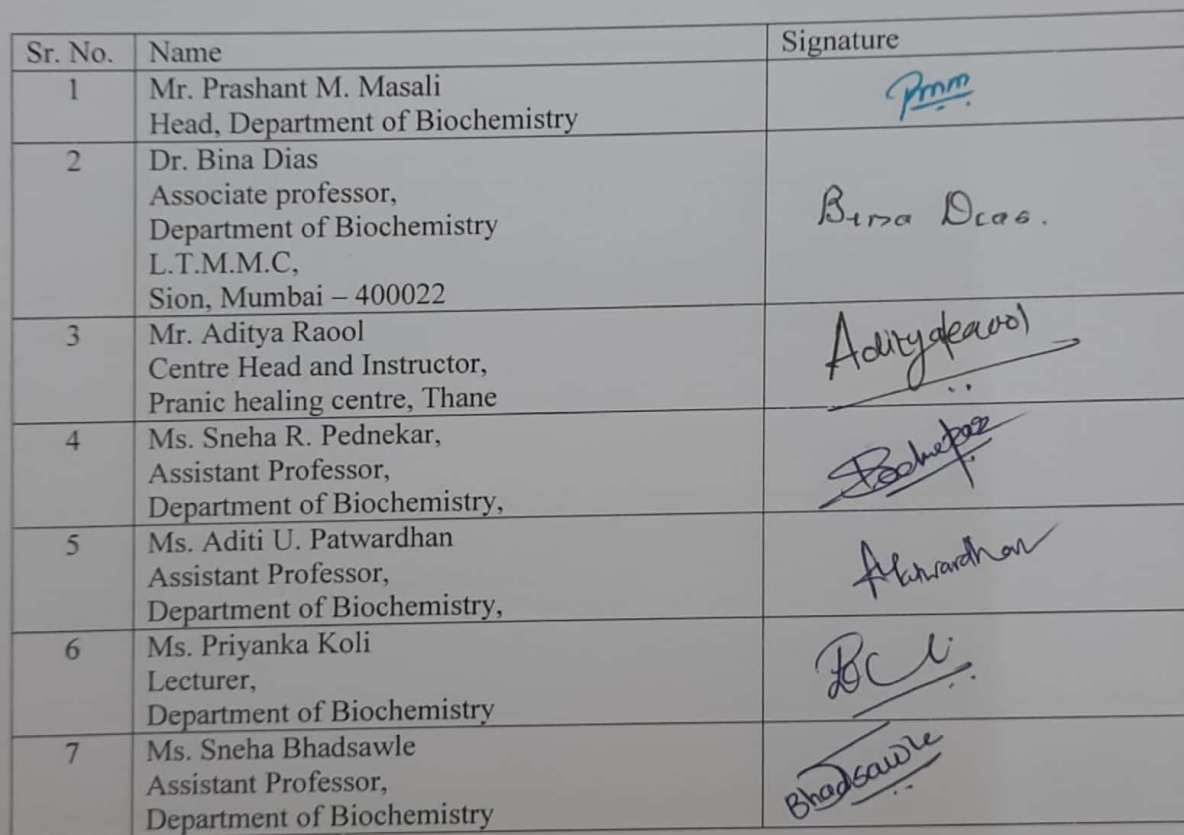 Sr. No. Name Signature
1 Mr. Prashant M. Masali
Head, Department of Biochemistry
Pmm
2 Dr. Bina Dias
Associate professor,
Department of Biochemistry
L.T.M.M.C,
Sion, Mumbai – 400022
Bina Dias.
3 Mr. Aditya Raool
Centre Head and Instructor,
Pranic healing centre, Thane
4 Ms. Sneha R. Pednekar,
Assistant Professor,
Department of Biochemistry,
5 Ms. Aditi U. Patwardhan
Assistant Professor,
Department of Biochemistry,
6 Ms. Priyanka Koli
Lecturer,
Department of Biochemistry
7 Ms. Sneha Bhadsawle
Assistant Professor,
Department of Biochemistry
Bhadsawle